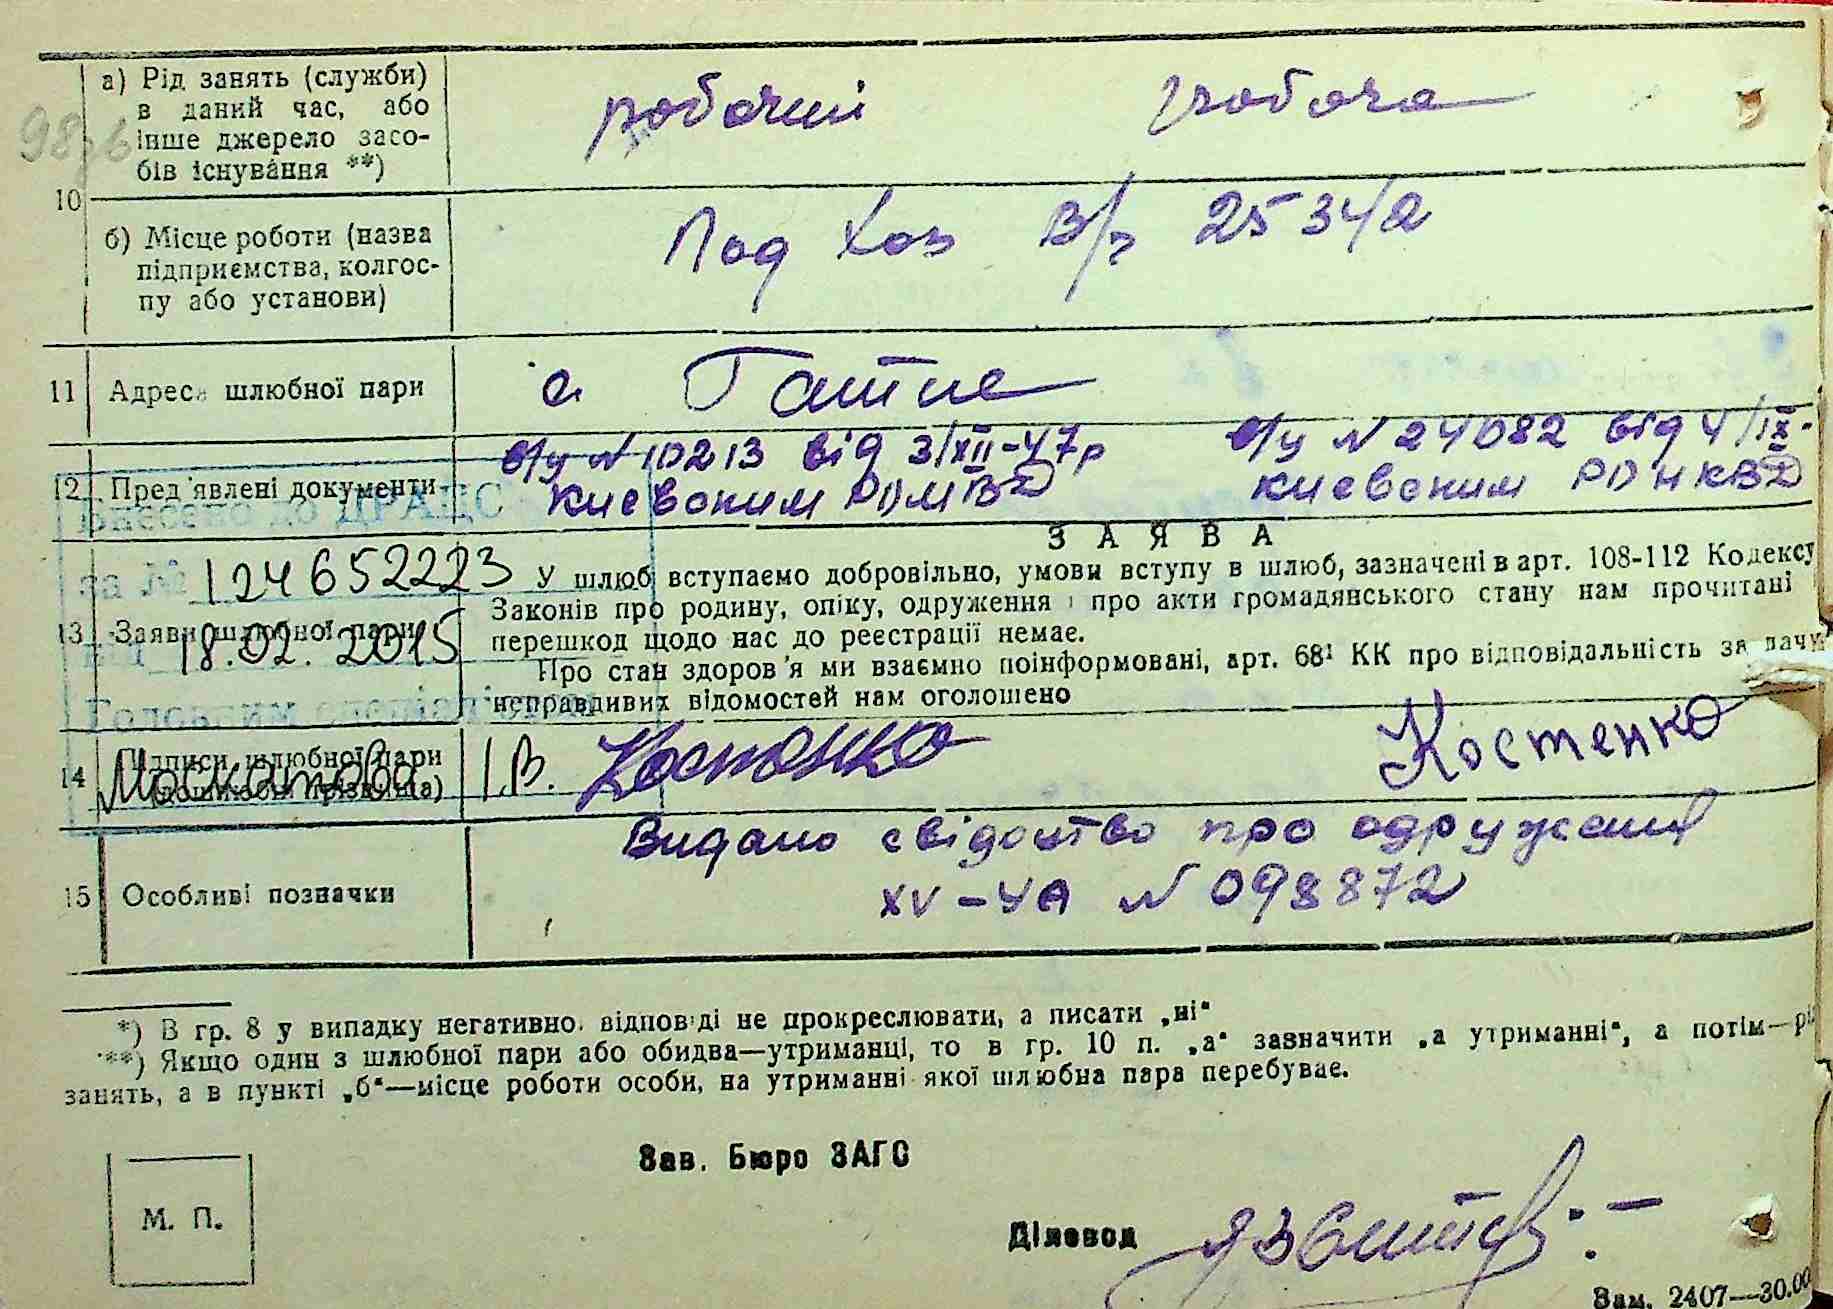 98
а) Рід занять (служби)
в даний час, або
інше джерело засо-
бів існування **)
робочий робоча
10
б) Місце роботи (назва
підприємства, колгос-
пу або установи)
Под Хоз В/ч 25342
11 Адреса шлюбної пари
с. Гатне
12 Пред'явлені документи
в/у № 10213 від 3/XII-47р
Києвським РОМВД
в/у № 24082 від 4/IX-
Києвським РО НКВД
Внесено до ДРАЦС
за № 124652223
від 18.02.2015
Головним спеціалістом
Москатова І.В.
13 Заяви шлюбної пари
ЗАЯВА
У шлюб вступаємо добровільно, умови вступу в шлюб, зазначені в арт. 108-112 Кодексу
Законів про родину, опіку, одруження і про акти громадянського стану нам прочитані
перешкод щодо нас до реєстрації немає.
Про стан здоров'я ми взаємно поінформовані, арт. 68¹ КК про відповідальність за дачу
неправдивих відомостей нам оголошено
14 Підписи шлюбної пари
Костенко Костенко
15 Особливі позначки
Видано свідоцтво про одруження
XV-УА № 098872
*) В гр. 8 у випадку негативно. відповіді не прокреслювати, а писати „ні“
**) Якщо один з шлюбної пари або обидва—утриманці, то в гр. 10 п. „а“ зазначити „а утриманні“, а потім—рі
занять, а в пункті „б“—місце роботи особи, на утриманні якої шлюбна пара перебуває.
Зав. Бюро ЗАГС
М. П.
Діловод
Зам. 2407—30.00